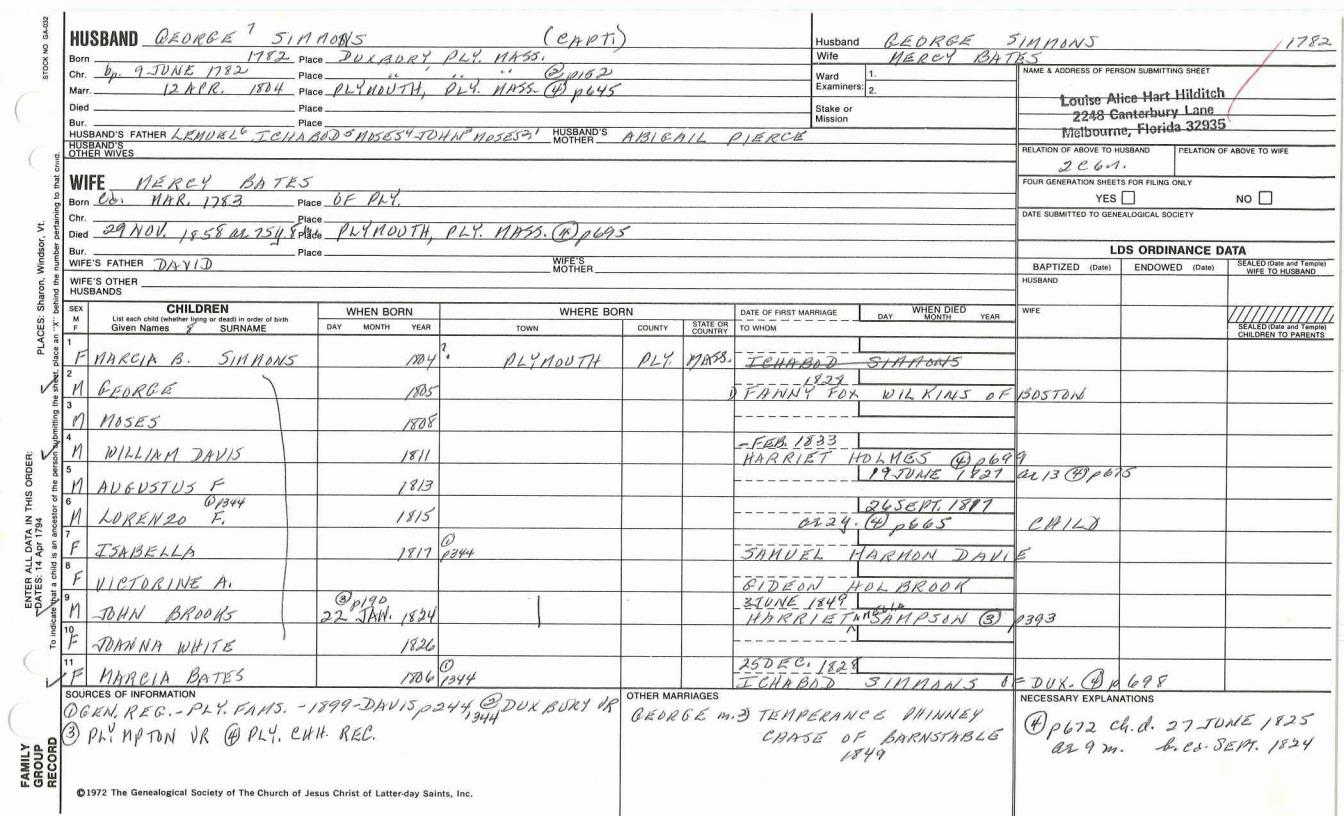 STOCK NO GA-032
HUSBAND GEORGE 7 SIMMONS (CAPT.)
Born 1782 Place DUXBURY PLY. MASS.
Chr. bp. 9 JUNE 1782 Place " " " ② p152
Marr. 12 APR. 1804 Place PLYMOUTH, PLY. MASS. ④ p645
Died Place
Bur. Place
HUSBAND'S FATHER LEMUEL6 ICHABOD5 MOSES4 JOHN3 MOSES2,1 HUSBAND'S MOTHER ABIGAIL PIERCE
HUSBAND'S OTHER WIVES
Husband GEORGE SIMMONS 1782
Wife MERCY BATES
Ward Examiners: 1.
2.
Stake or Mission
NAME & ADDRESS OF PERSON SUBMITTING SHEET
Louise Alice Hart Hilditch
2248 Canterbury Lane
Melbourne, Florida 32935
RELATION OF ABOVE TO HUSBAND RELATION OF ABOVE TO WIFE
2C6R.
FOUR GENERATION SHEETS FOR FILING ONLY
YES NO
DATE SUBMITTED TO GENEALOGICAL SOCIETY
WIFE MERCY BATES
Born Ca. MAR. 1783 Place OF PLY.
Chr. Place
Died 29 NOV. 1858 ae 75y 8m Place PLYMOUTH, PLY. MASS. ④ p695
Bur. Place
WIFE'S FATHER DAVID WIFE'S MOTHER
WIFE'S OTHER HUSBANDS
LDS ORDINANCE DATA
BAPTIZED (Date) ENDOWED (Date) SEALED (Date and Temple) WIFE TO HUSBAND
HUSBAND
WIFE
SEALED (Date and Temple) CHILDREN TO PARENTS
SEX M F CHILDREN WHEN BORN WHERE BORN DATE OF FIRST MARRIAGE WHEN DIED
List each child (whether living or dead) in order of birth
Given Names 8 SURNAME DAY MONTH YEAR TOWN COUNTY STATE OR COUNTRY TO WHOM DAY MONTH YEAR
1 F MARCIA B. SIMMONS 1804 ? PLYMOUTH PLY. MASS. ICHABOD SIMMONS
2 1829
M GEORGE 1805 FANNY FOX WILKINS OF BOSTON
3 M MOSES 1808
4 FEB. 1833
M WILLIAM DAVIS 1811 HARRIET HOLMES ④ p699
5 19 JUNE 1827 ae 13 ④ p675
M AUGUSTUS F 1813
6 ① p344 26 SEPT. 1817
M LORENZO F. 1815 ae 2y. ④ p665 CHILD
7 F ISABELLA 1817 ① p344 SAMUEL HARMON DAVIE
8 F VICTORINE A. GIDEON HOLBROOK
9 ③ p190 3 JUNE 1849
M JOHN BROOKS 22 JAN. 1824 HARRIET SAMPSON ③ p393
10 F JOANNA WHITE 1826
11 25 DEC. 1828
F MARCIA BATES 1806 ① 1344 ICHABOD SIMMONS OF DUX. ④ p 698
SOURCES OF INFORMATION
① GEN. REG. - PLY. FAMS. - 1899 - DAVIS p244, 1344 ② DUXBURY VR
③ PLYMPTON VR ④ PLY. CHH. REC.
OTHER MARRIAGES
GEORGE m. 2) TEMPERANCE PHINNEY
CHASE OF BARNSTABLE
1849
NECESSARY EXPLANATIONS
④ p672 ch. d. 27 JUNE 1825
ae 9 m. b. ca. SEPT. 1824
©1972 The Genealogical Society of The Church of Jesus Christ of Latter-day Saints, Inc.
FAMILY GROUP RECORD
ENTER ALL DATA IN THIS ORDER:
DATES: 14 Apr 1794
PLACES: Sharon, Windsor, Vt.
To indicate that a child is an ancestor of the person submitting the sheet, place an "X" behind the number pertaining to that child.